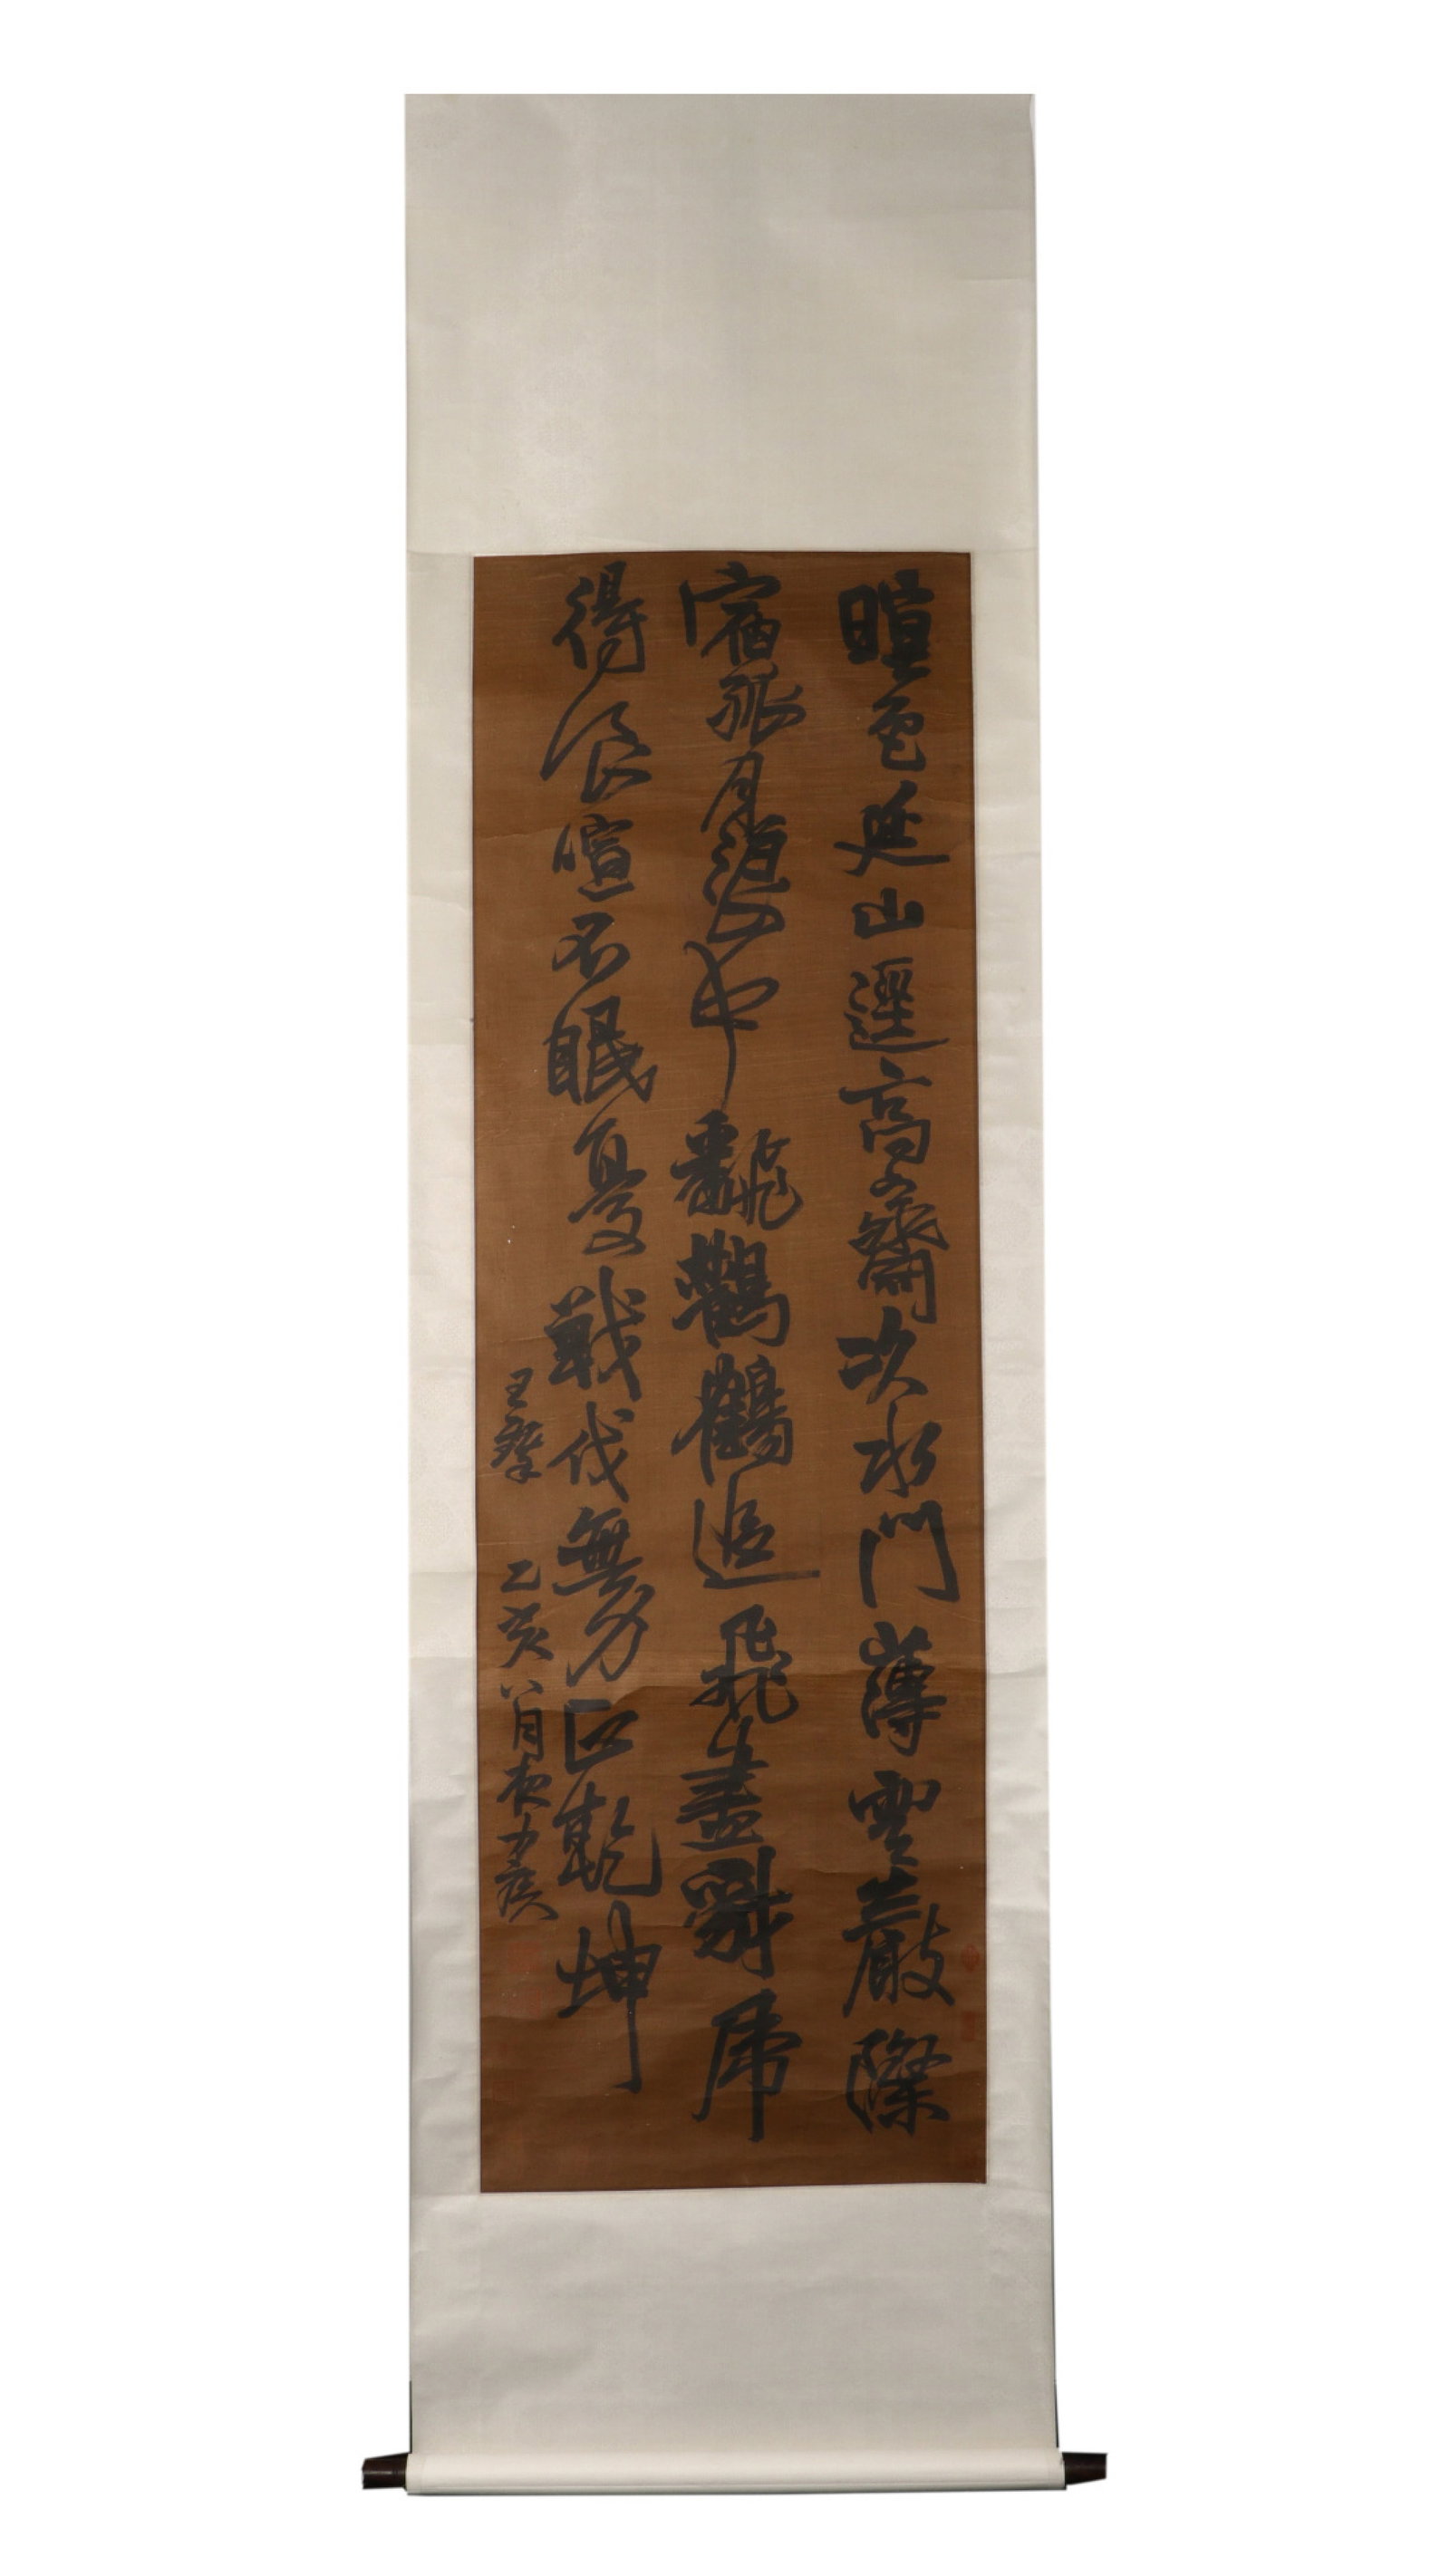 暝色延山逕高齋次水門薄雲巖際
宿孤月浪中飜鸛鶴追飛盡豺虎
得食喧不眠憂戰伐無力正乾坤
王鐸 乙亥八月夜